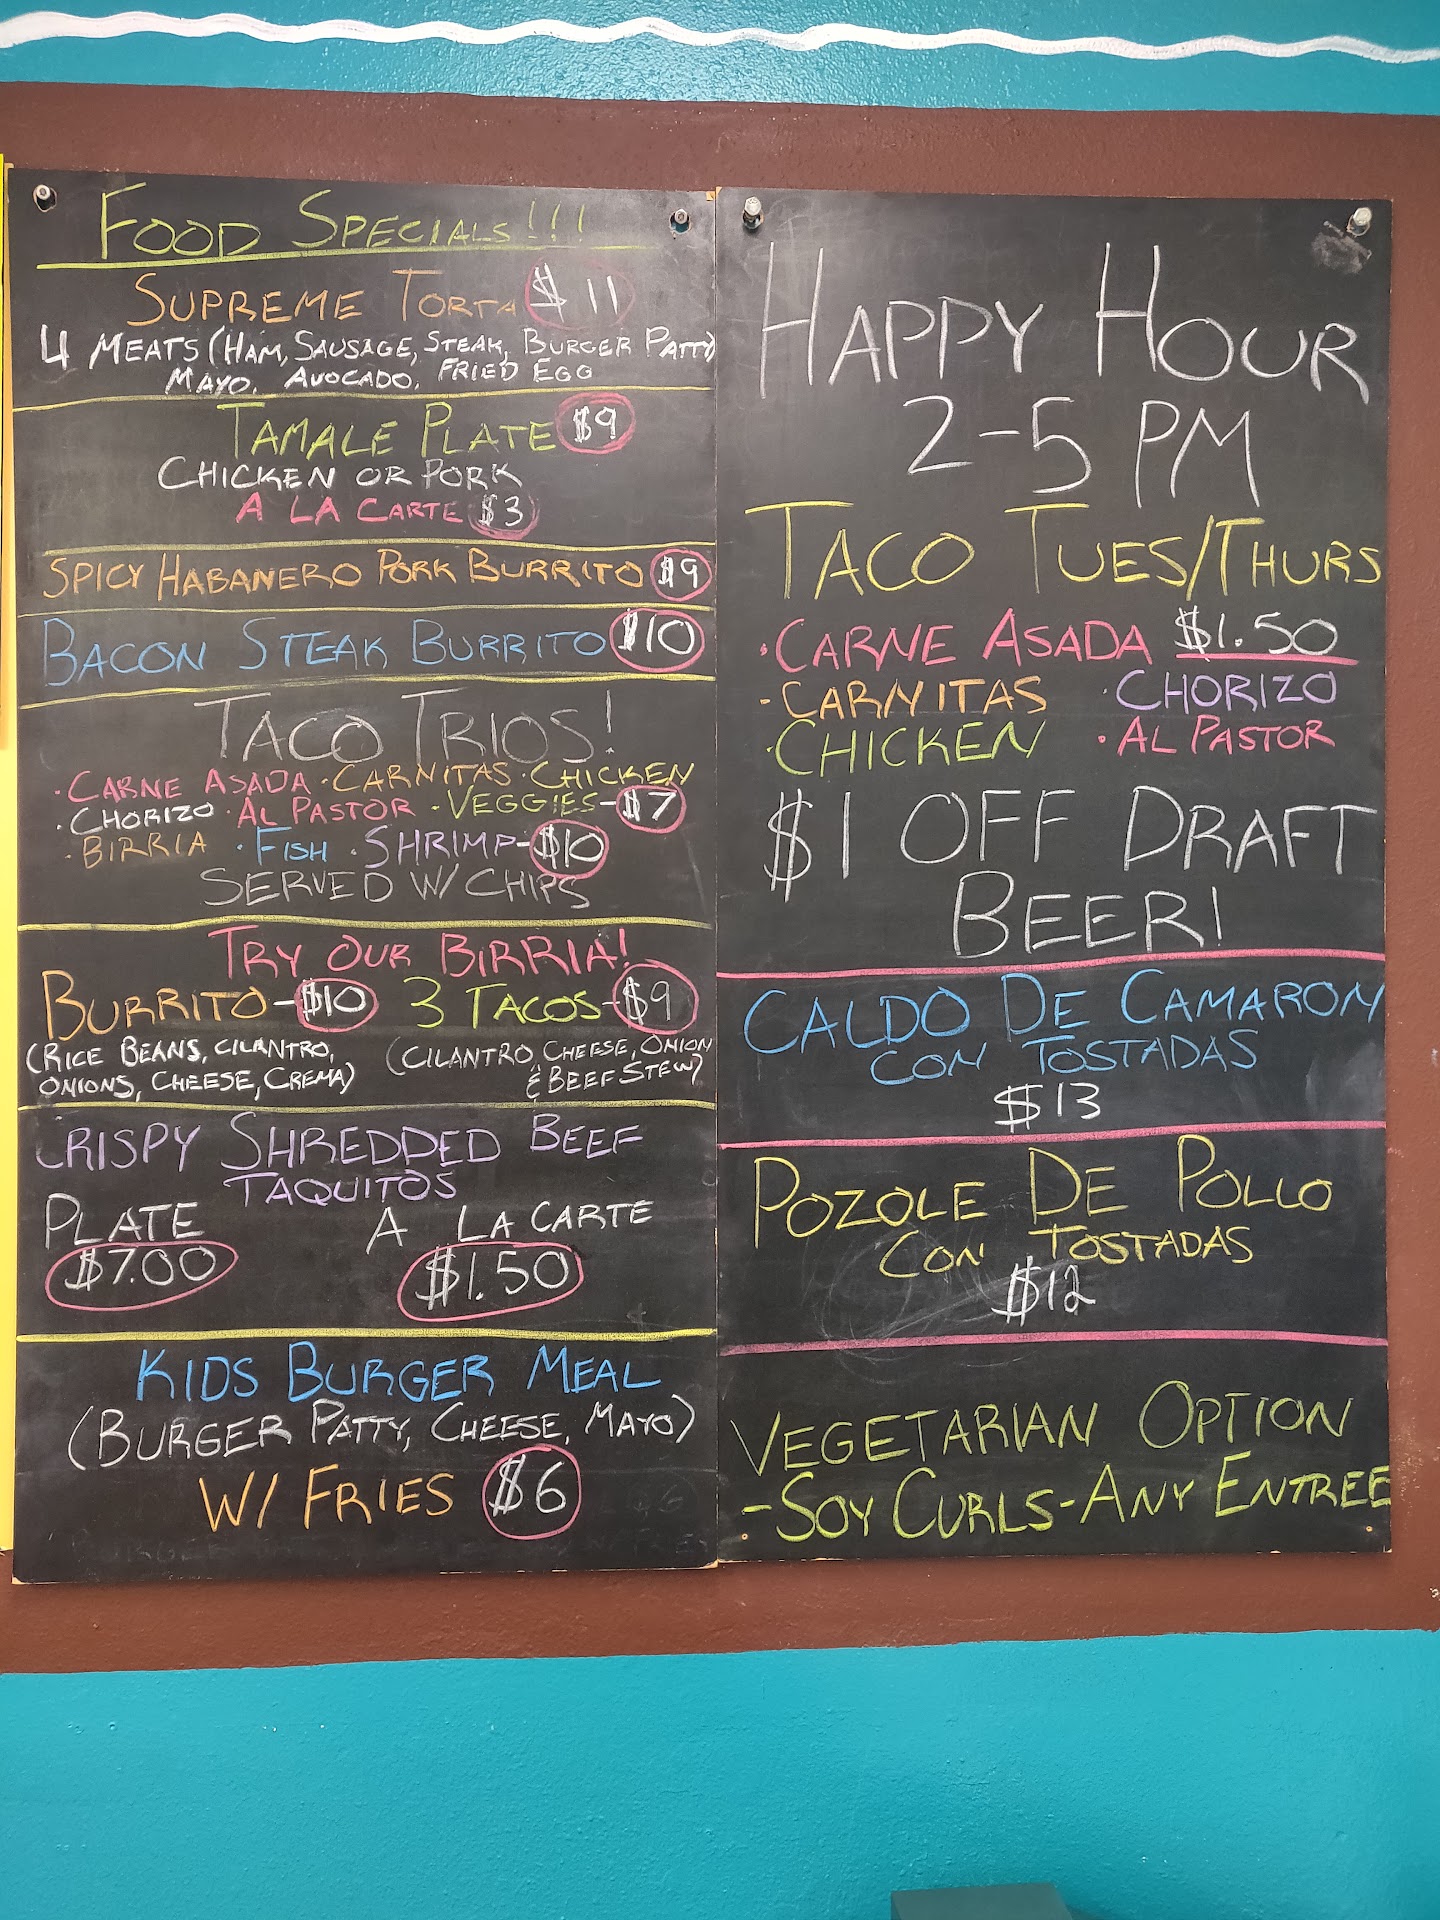 FOOD SPECIALS!!!
SUPREME TORTA $11
4 MEATS (HAM, SAUSAGE, STEAK, BURGER PATTY)
MAYO, AVOCADO, FRIED EGG
TAMALE PLATE $9
CHICKEN OR PORK
A LA CARTE $3
SPICY HABANERO PORK BURRITO $9
BACON STEAK BURRITO $10
TACO TRIOS!
· CARNE ASADA · CARNITAS · CHICKEN
· CHORIZO · AL PASTOR · VEGGIES - $7
· BIRRIA · FISH · SHRIMP - $10
SERVED W/ CHIPS
TRY OUR BIRRIA!
BURRITO - $10 3 TACOS - $9
(RICE BEANS, CILANTRO,
ONIONS, CHEESE, CREMA)
(CILANTRO, CHEESE, ONION
& BEEF STEW)
CRISPY SHREDDED BEEF
TAQUITOS
PLATE A LA CARTE
$7.00 $1.50
KIDS BURGER MEAL
(BURGER PATTY, CHEESE, MAYO)
W/ FRIES $6
HAPPY HOUR
2-5 PM
TACO TUES/THURS
· CARNE ASADA $1.50
· CARNITAS · CHORIZO
· CHICKEN · AL PASTOR
$1 OFF DRAFT
BEER!
CALDO DE CAMARON
CON TOSTADAS
$13
POZOLE DE POLLO
CON TOSTADAS
$12
VEGETARIAN OPTION
- SOY CURLS - ANY ENTREE